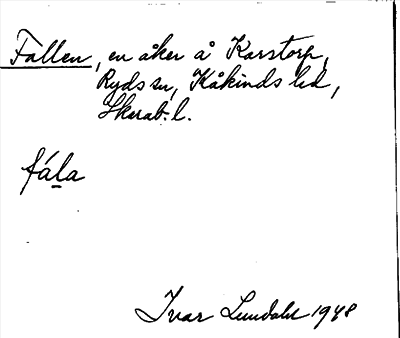 Fallen, en åker å Karstorp,
Ryds sn, Kåkinds hd,
Skarab. l.
fála
Ivar Lundahl 1948